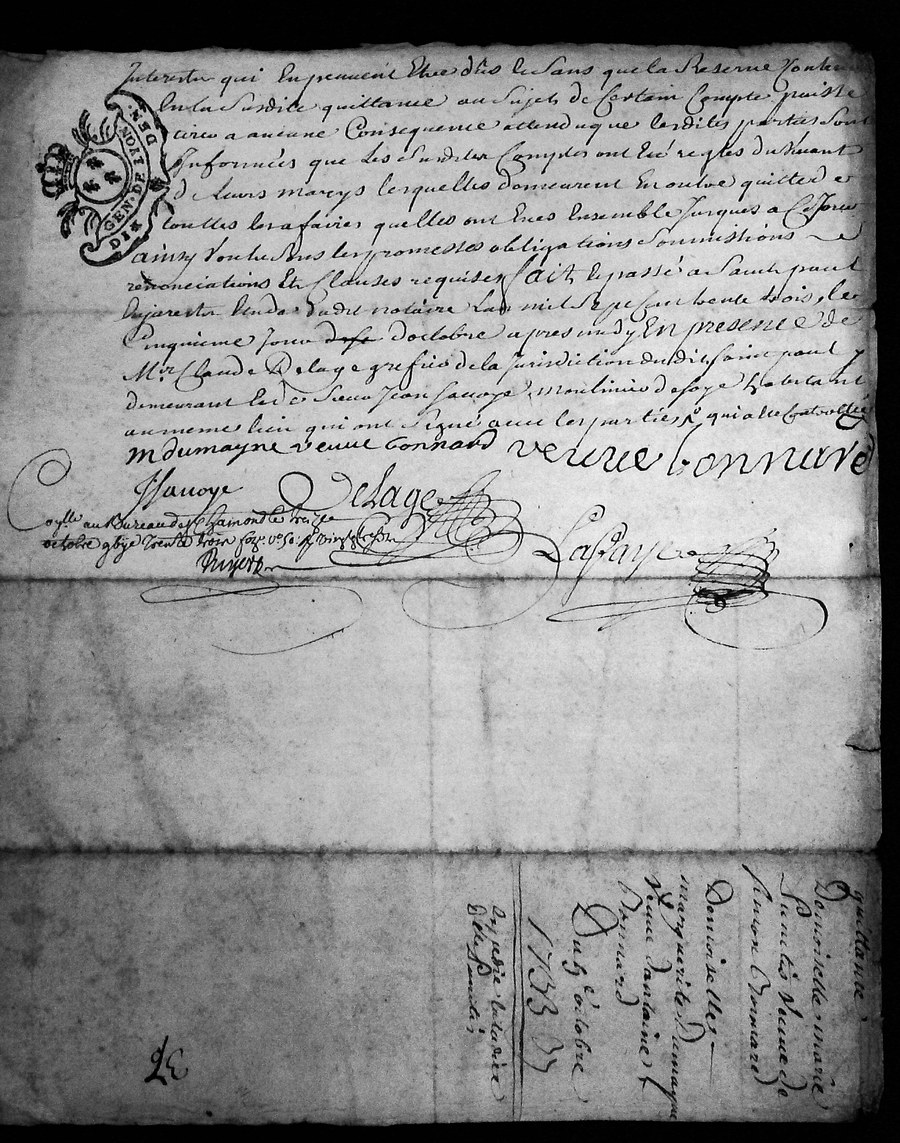 Interests qui en peuvent Etre dûs le sans que la Reserve Conten
En la Susdite quittance au Sujet de Certain Compte puisse
tirer a aucune Consequence attendu que lesdites parties sont
Informées que les Susdites Comptes ont Eté reglés du vivant
de leurs marys lesquelles demeurent En outre quittes de
touttes les afaires quelles ont Eues Ensemble Jusques a Ce Jour
ainsy Voulu sous les promesses obligations Soummissions
renonciations Et Clauses requises fait Et passé a Saint paul
En Jarest En dudit notaire Lan mil Sept Cent trente trois, le
Cinquieme Jour d'octobre apres midy En presence de
Mre. Claude Delage grefier de la Jurisdiction dudit Saint paul y
demeurant Et de Sieur Jean Jauoye moulinier de soye habitant
au meme lieu qui ont Signé avec les parties qui a Eté Controllée
M dumayne veuue bonnard veuue bonnard
J Jauoye Delage
oylle au Bureau de St Chamond le treize
octobre gbije trente trois
Lafaye
GEN. DE LYON
DIX DEN.
quittance
Demoiselle marie
veuve de
Simon Bonnard
Demoiselle
marguerite Dumayne
veuve d'antoine
Bonnard
Du 5e octobre
1733